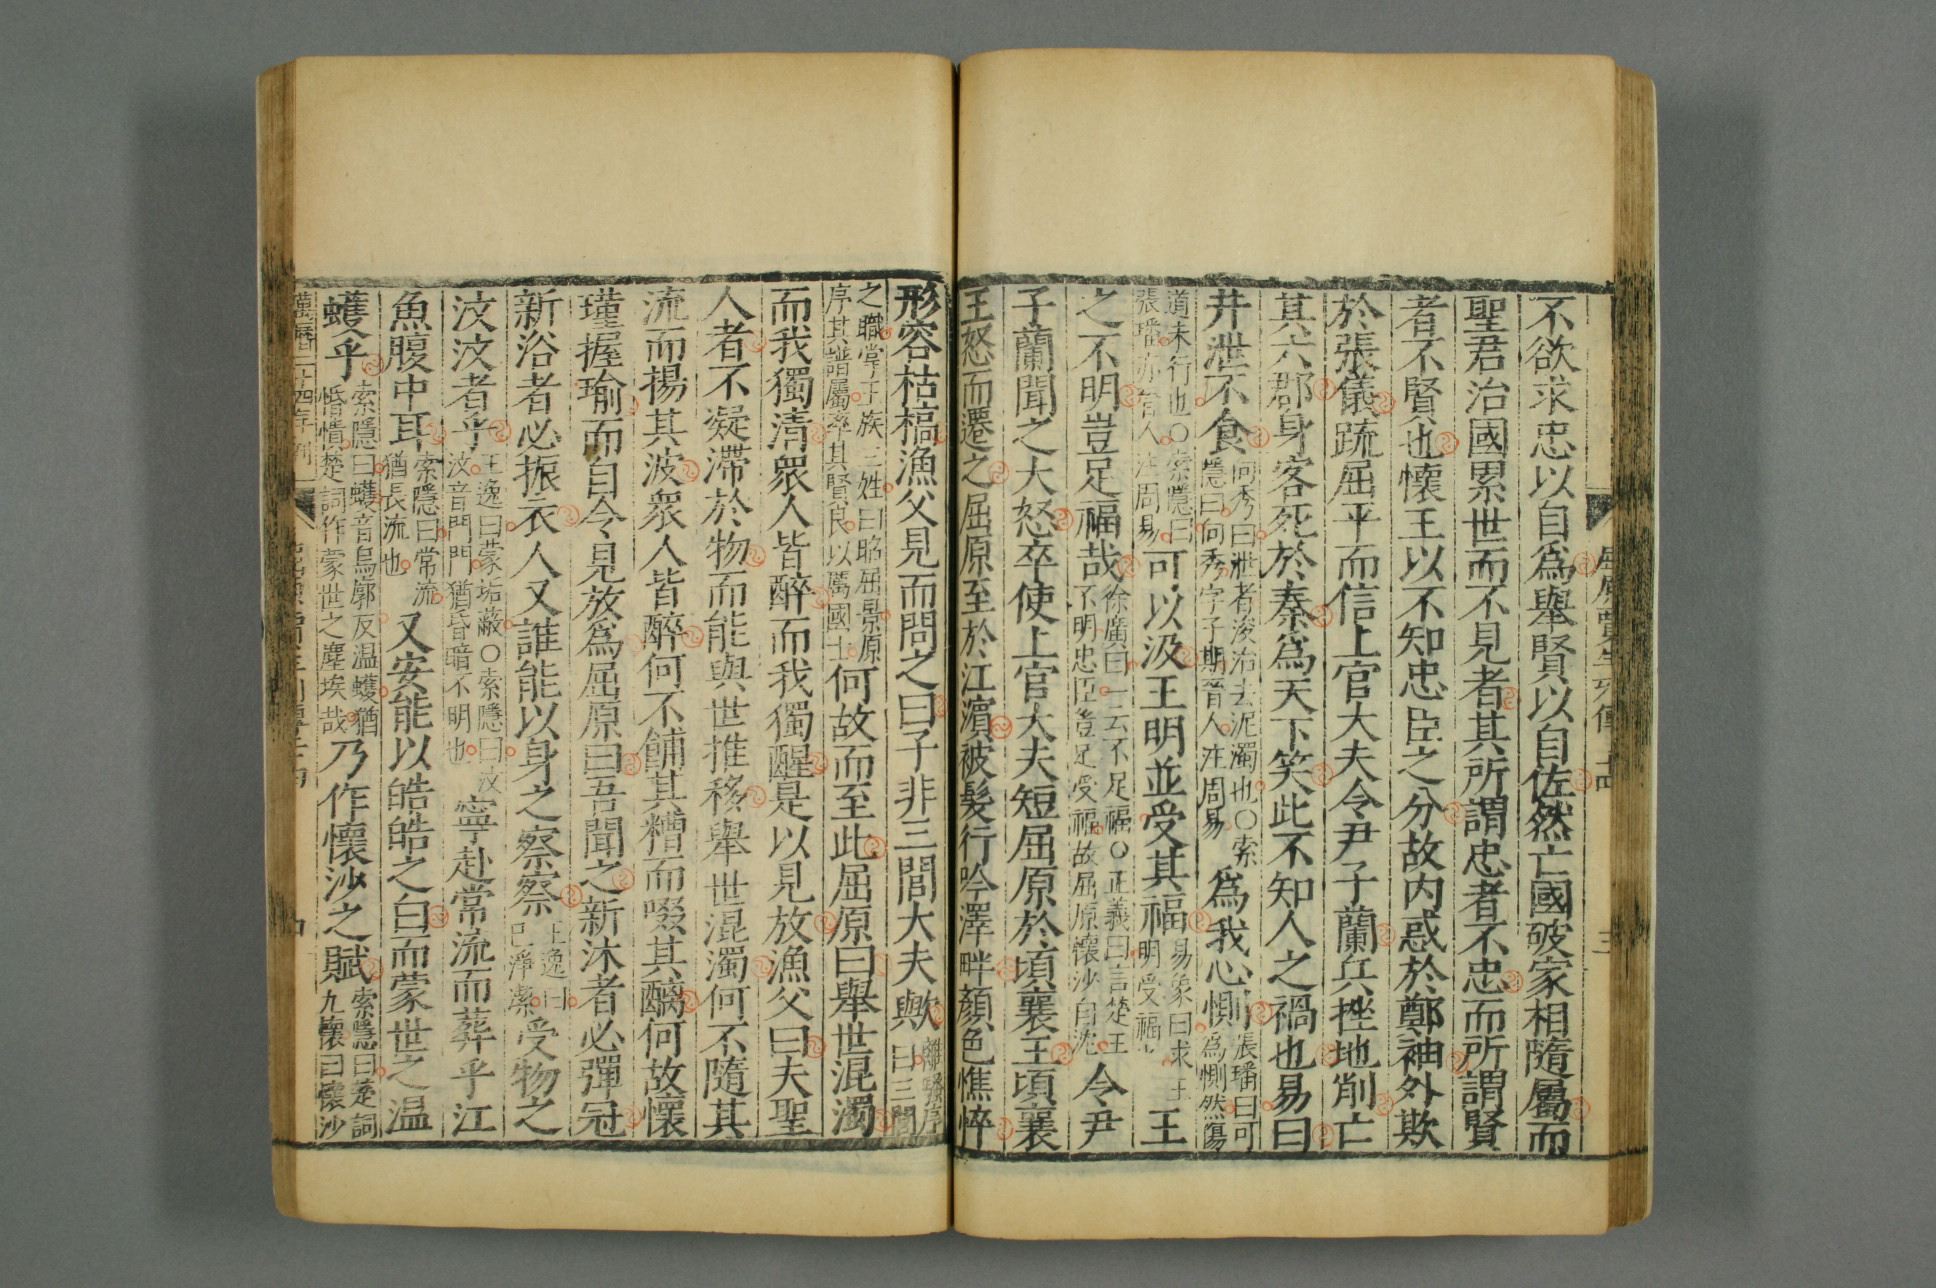 屈原賈生列傳二十四 三
不欲求忠以自爲舉賢以自佐然亡國破家相隨屬而
聖君治國累世而不見者其所謂忠者不忠而所謂賢
者不賢也懷王以不知忠臣之分故内惑於鄭袖外欺
於張儀疏屈平而信上官大夫令尹子蘭兵挫地削亡
其六郡身客死於秦爲天下笑此不知人之禍也易曰
井泄不食向秀曰泄者浚治去泥濁也○索隱曰向秀字子期晉人注周易爲我心惻張璠曰可爲惻然傷
道未行也○索隱曰張璠亦晉人注周易可以汲王明並受其福易象曰求王明受福也王
之不明豈足福哉徐廣曰一云不足福○正義曰言楚王不明忠臣豈足受福故屈原懷沙自沈令尹
子蘭聞之大怒卒使上官大夫短屈原於頃襄王頃襄
王怒而遷之屈原至於江濱被髮行吟澤畔顏色憔悴
形容枯槁漁父見而問之曰子非三閭大夫歟離騷序曰三閭
之職掌王族三姓曰昭屈景原序其譜屬率其賢良以厲國士何故而至此屈原曰舉世混濁
而我獨清衆人皆醉而我獨醒是以見放漁父曰夫聖
人者不凝滯於物而能與世推移舉世混濁何不隨其
流而揚其波衆人皆醉何不餔其糟而啜其醨何故懷
瑾握瑜而自令見放爲屈原曰吾聞之新沐者必彈冠
新浴者必振衣人又誰能以身之察察王逸曰己淨潔受物之
汶汶者乎王逸曰蒙垢蔽○索隱曰汶汶音門門猶昏暗不明也寧赴常流而葬乎江
魚腹中耳索隱曰常流猶長流也又安能以皓皓之白而蒙世之温
蠖乎索隱曰蠖音烏廓反温蠖猶惛憒楚詞作蒙世之塵埃哉乃作懷沙之賦索隱曰楚詞九懷曰懷沙
萬曆二十四年刊 屈原賈生列傳二十四 四